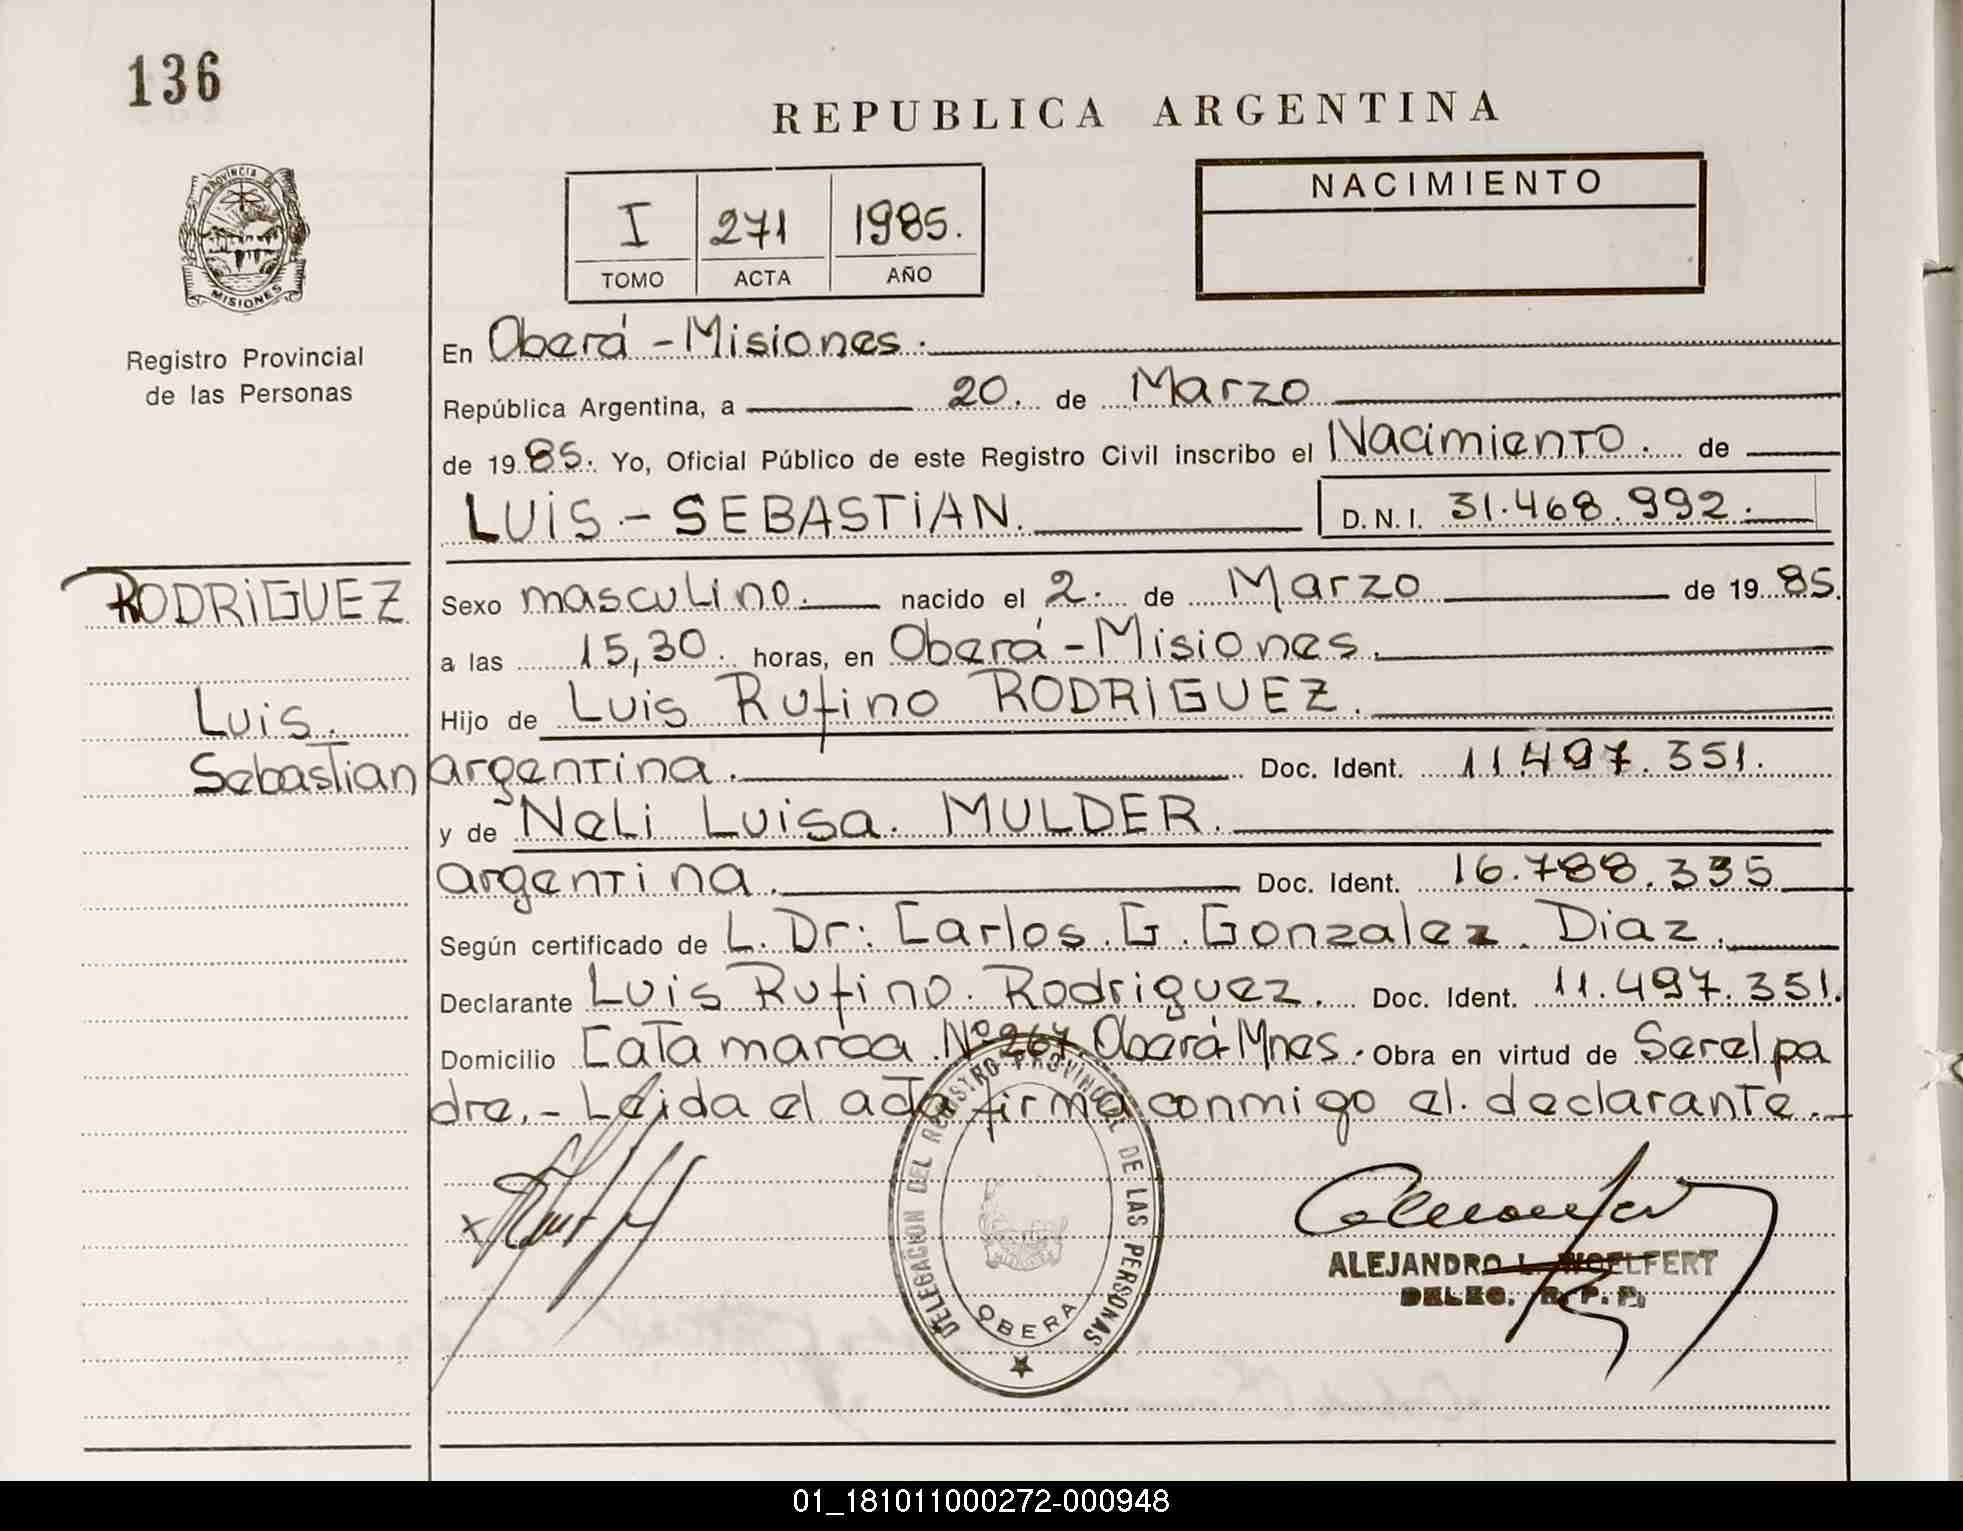 136
REPUBLICA ARGENTINA
PROVINCIA DE
MISIONES
I 271 1985.
TOMO ACTA AÑO
NACIMIENTO
Registro Provincial
de las Personas
En Oberá - Misiones.
República Argentina, a 20. de Marzo
de 1985. Yo, Oficial Público de este Registro Civil inscribo el Nacimiento. de
LUIS - SEBASTIAN.
D. N. I. 31.468.992.
RODRIGUEZ
Luis.
Sebastian
Sexo masculino. nacido el 2. de Marzo de 1985.
a las 15,30. horas, en Oberá - Misiones.
Hijo de Luis Rufino RODRIGUEZ.
argentina. Doc. Ident. 11.497.351.
y de Neli Luisa. MULDER.
argentina. Doc. Ident. 16.788.335
Según certificado de L. Dr: Carlos. G. Gonzalez. Diaz.
Declarante Luis Rufino. Rodriguez. Doc. Ident. 11.497.351.
Domicilio Catamarca. Nº 267. Oberá-Mnes. Obra en virtud de Ser el pa
dre.- Leida el acta firma conmigo el. declarante.
DELEGACION DEL REGISTRO PROVINCIAL DE LAS PERSONAS
OBERA
ALEJANDRO L. WOELFERT
DELEG. R. P. P.
01_181011000272-000948